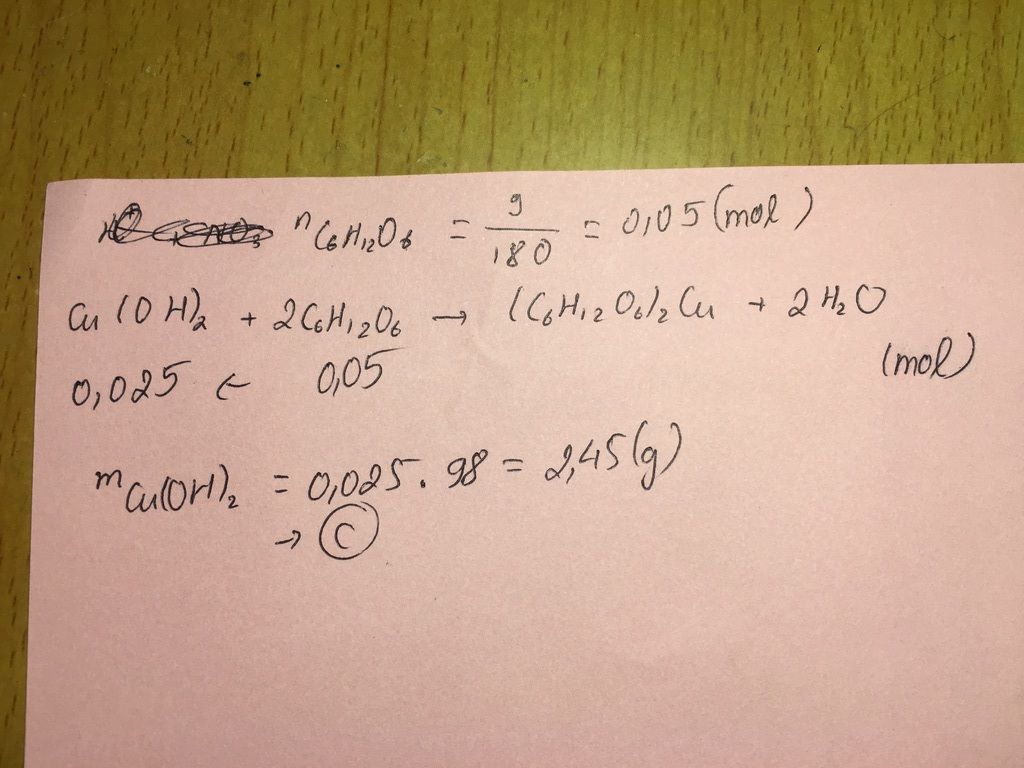 nC6H12O6 = 9/180 = 0,05 (mol)
Cu(OH)2 + 2C6H12O6 → (C6H12O6)2Cu + 2H2O
0,025 ← 0,05 (mol)
mCu(OH)2 = 0,025 . 98 = 2,45 (g)
→ C